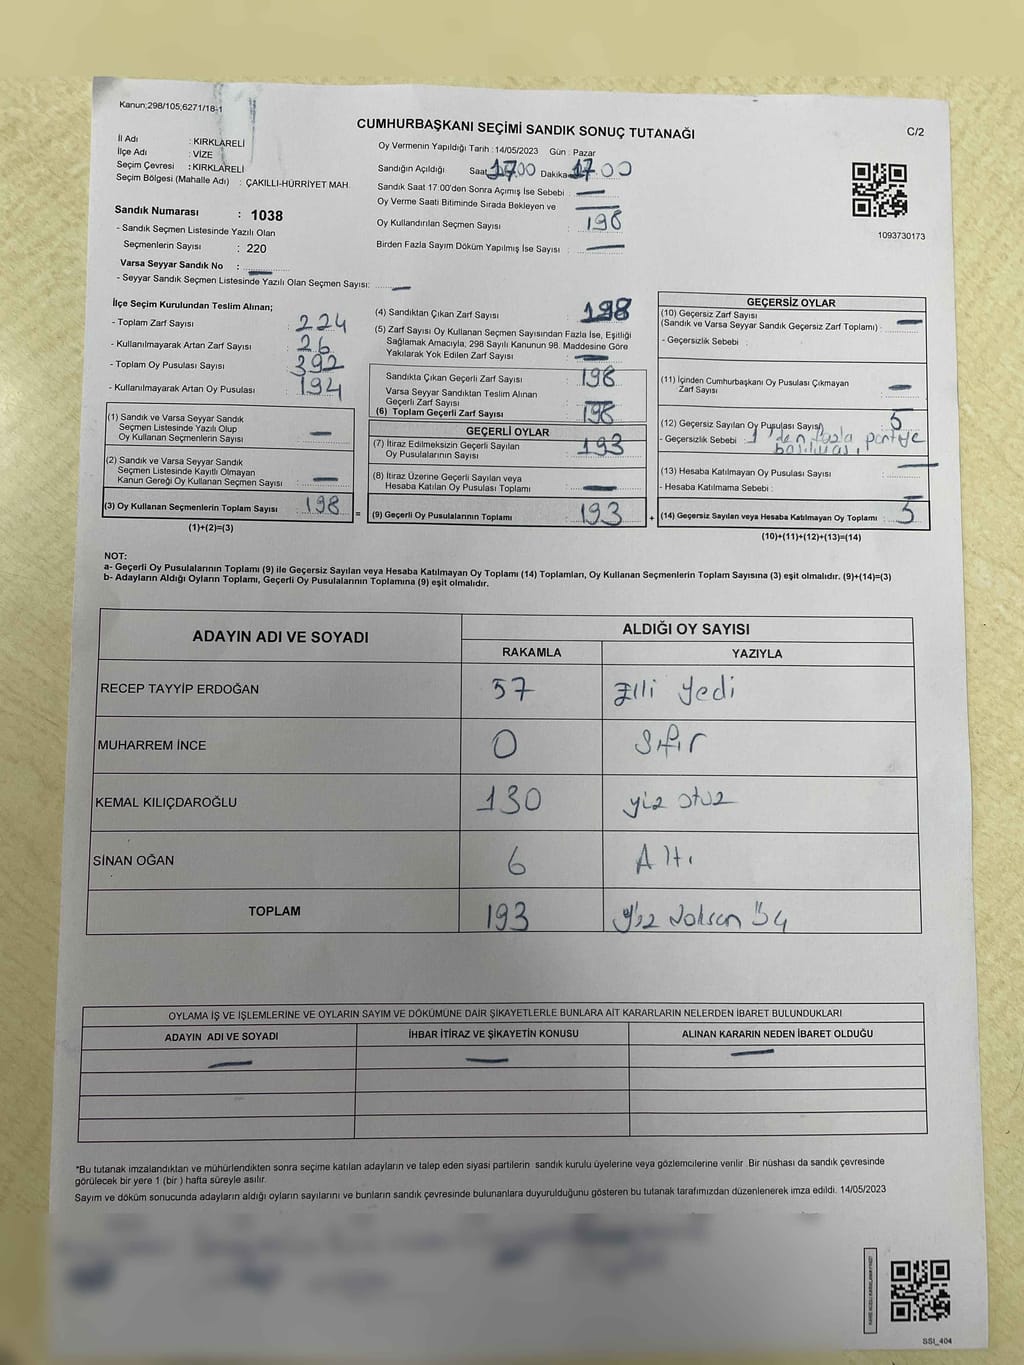 Kanun;298/105,6271/18-1
CUMHURBAŞKANI SEÇİMİ SANDIK SONUÇ TUTANAĞI
C/2
İl Adı : KIRKLARELİ
İlçe Adı : VİZE
Seçim Çevresi : KIRKLARELİ
Seçim Bölgesi (Mahalle Adı) : ÇAKILLI-HÜRRİYET MAH.
Sandık Numarası : 1038
- Sandık Seçmen Listesinde Yazılı Olan
Seçmenlerin Sayısı : 220
Varsa Seyyar Sandık No : —
- Seyyar Sandık Seçmen Listesinde Yazılı Olan Seçmen Sayısı: —
Oy Vermenin Yapıldığı Tarih : 14/05/2023 Gün : Pazar
Sandığın Açıldığı Saat 17.00 Dakika 17.00
Sandık Saat 17:00'den Sonra Açımış İse Sebebi : —
Oy Verme Saati Bitiminde Sırada Bekleyen ve —
Oy Kullandırılan Seçmen Sayısı : 198
Birden Fazla Sayım Döküm Yapılmış İse Sayısı : —
1093730173
İlçe Seçim Kurulundan Teslim Alınan;
- Toplam Zarf Sayısı : 224
- Kullanılmayarak Artan Zarf Sayısı : 26
- Toplam Oy Pusulası Sayısı : 392
- Kullanılmayarak Artan Oy Pusulası : 194
(1) Sandık ve Varsa Seyyar Sandık
Seçmen Listesinde Yazılı Olup
Oy Kullanan Seçmenlerin Sayısı : —
(2) Sandık ve Varsa Seyyar Sandık
Seçmen Listesinde Kayıtlı Olmayan
Kanun Gereği Oy Kullanan Seçmen Sayısı : —
(3) Oy Kullanan Seçmenlerin Toplam Sayısı : 198
(1)+(2)=(3)
=
(4) Sandıktan Çıkan Zarf Sayısı : 198
(5) Zarf Sayısı Oy Kullanan Seçmen Sayısından Fazla İse, Eşitliği
Sağlamak Amacıyla; 298 Sayılı Kanunun 98. Maddesine Göre
Yakılarak Yok Edilen Zarf Sayısı : —
Sandıkta Çıkan Geçerli Zarf Sayısı : 198
Varsa Seyyar Sandıktan Teslim Alınan
Geçerli Zarf Sayısı : —
(6) Toplam Geçerli Zarf Sayısı : 198
GEÇERLİ OYLAR
(7) İtiraz Edilmeksizin Geçerli Sayılan
Oy Pusulalarının Sayısı : 193
(8) İtiraz Üzerine Geçerli Sayılan veya
Hesaba Katılan Oy Pusulası Toplamı : —
(9) Geçerli Oy Pusulalarının Toplamı : 193
+
GEÇERSİZ OYLAR
(10) Geçersiz Zarf Sayısı
(Sandık ve Varsa Seyyar Sandık Geçersiz Zarf Toplamı) : —
- Geçersizlik Sebebi :
(11) İçinden Cumhurbaşkanı Oy Pusulası Çıkmayan
Zarf Sayısı : —
(12) Geçersiz Sayılan Oy Pusulası Sayısı : 5
- Geçersizlik Sebebi : 1'den fazla partiye
basılması.
(13) Hesaba Katılmayan Oy Pusulası Sayısı : —
- Hesaba Katılmama Sebebi :
(14) Geçersiz Sayılan veya Hesaba Katılmayan Oy Toplamı : 5
(10)+(11)+(12)+(13)=(14)
NOT:
a- Geçerli Oy Pusulalarının Toplamı (9) ile Geçersiz Sayılan veya Hesaba Katılmayan Oy Toplamı (14) Toplamları, Oy Kullanan Seçmenlerin Toplam Sayısına (3) eşit olmalıdır. (9)+(14)=(3)
b- Adayların Aldığı Oyların Toplamı, Geçerli Oy Pusulalarının Toplamına (9) eşit olmalıdır.
ADAYIN ADI VE SOYADI ALDIĞI OY SAYISI
RAKAMLA YAZIYLA
RECEP TAYYİP ERDOĞAN 57 Elli yedi
MUHARREM İNCE 0 Sıfır
KEMAL KILIÇDAROĞLU 130 yüz otuz
SİNAN OĞAN 6 Altı
TOPLAM 193 yüz doksan
OYLAMA İŞ VE İŞLEMLERİNE VE OYLARIN SAYIM VE DÖKÜMÜNE DAİR ŞİKAYETLERLE BUNLARA AİT KARARLARIN NELERDEN İBARET BULUNDUKLARI
ADAYIN ADI VE SOYADI İHBAR İTİRAZ VE ŞİKAYETİN KONUSU ALINAN KARARIN NEDEN İBARET OLDUĞU
— — —
*Bu tutanak imzalandıktan ve mühürlendikten sonra seçime katılan adayların ve talep eden siyasi partilerin sandık kurulu üyelerine veya gözlemcilerine verilir. Bir nüshası da sandık çevresinde
görülecek bir yere 1 (bir ) hafta süreyle asılır.
Sayım ve döküm sonucunda adayların aldığı oyların sayılarını ve bunların sandık çevresinde bulunanlara duyurulduğunu gösteren bu tutanak tarafımızdan düzenlenerek imza edildi. 14/05/2023
SSI_404